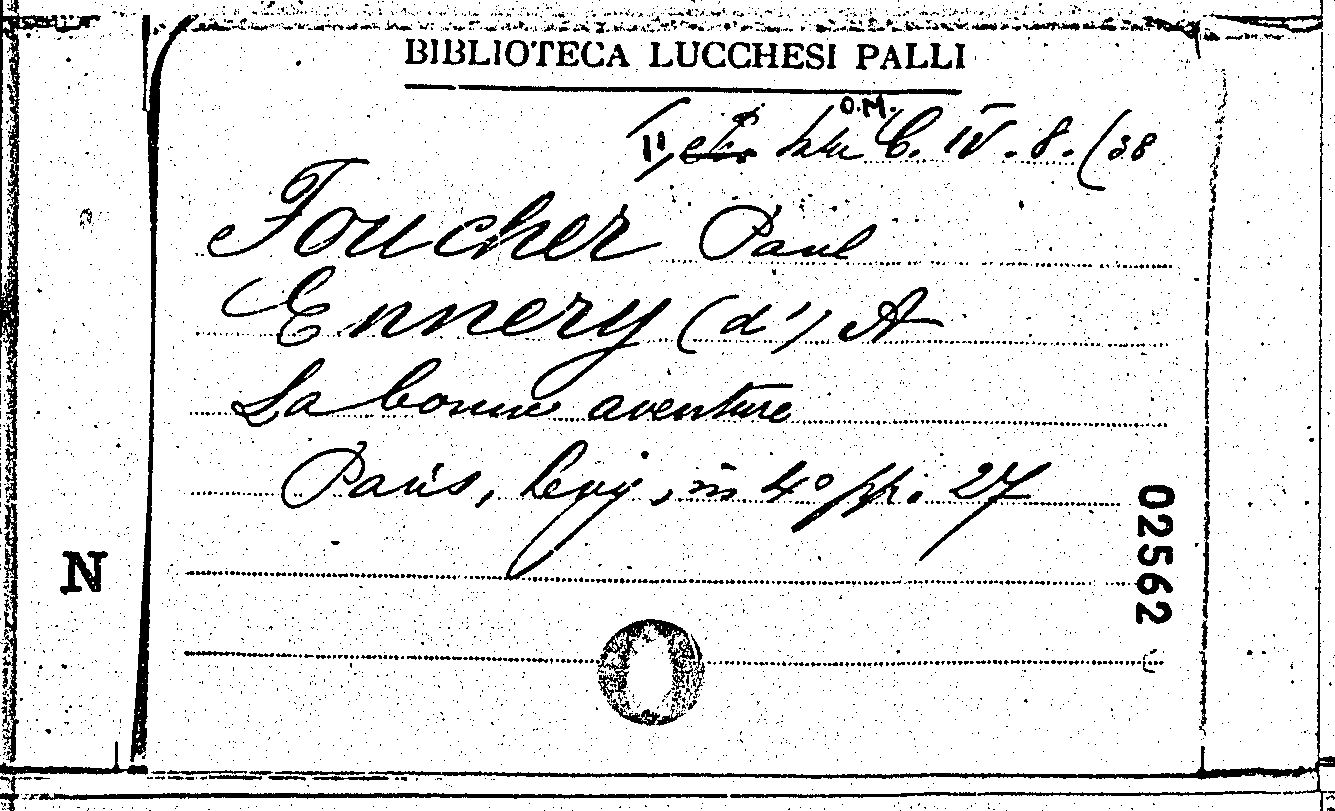 BIBLIOTECA LUCCHESI PALLI
O.M.
C. IV. 8. (38
Foucher Paul
Ennery (d') A
La bonne aventure
Paris, Levy, in 4° pp. 27
N
02562